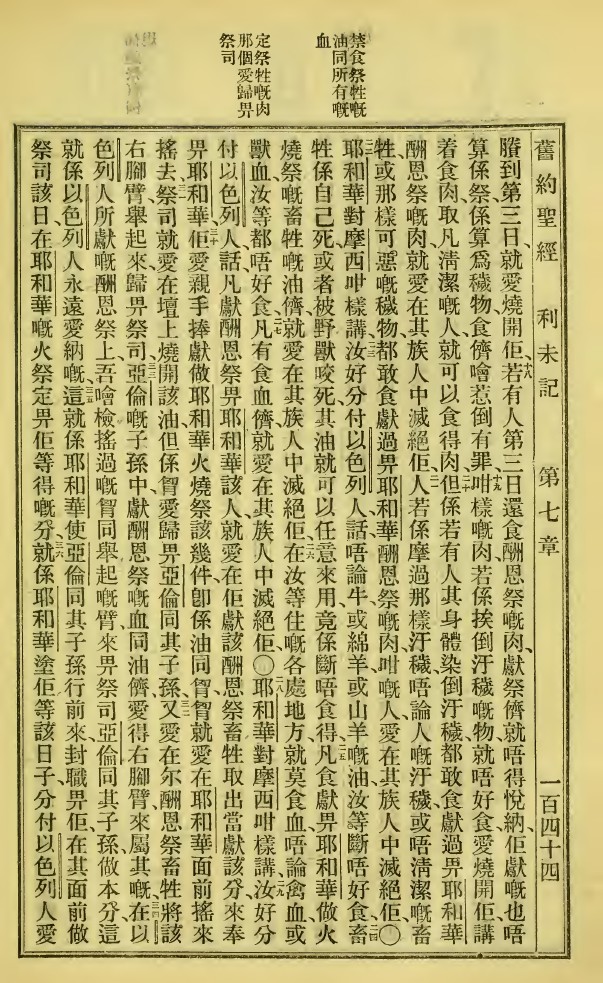 禁食祭牲嘅
油同所有嘅
血
定祭牲嘅肉
那個愛歸畀
祭司
舊約聖經 利未記 第七章 一百四十四
賸到第三日、就愛燒開佢、十八若有人第三日還食酬恩祭嘅肉、獻祭儕就唔得悅納、佢獻嘅也唔
算係祭、係算爲穢物、食儕噲惹倒有罪、十九咁樣嘅肉、若係挨倒汙穢嘅物、就唔好食、愛燒開佢、講
着食肉、取凡淸潔嘅人就可以食得肉、二十但係若有人其身體染倒汙穢、都敢食獻過畀耶和華
酬恩祭嘅肉、就愛在其族人中滅絕佢、二一人若係摩過那樣汙穢、唔論人嘅汙穢、或唔淸潔嘅畜
牲、或那樣可惡嘅穢物、都敢食獻過畀耶和華酬恩祭嘅肉、咁嘅人愛在其族人中滅絕佢、〇二二
耶和華對摩西咁樣講、二三汝好分付以色列人話、唔論牛、或綿羊、或山羊嘅油、汝等斷唔好食、二四畜
牲係自己死、或者被野獸咬死、其油就可以任意來用、竟係斷唔食得、二五凡食獻畀耶和華做火
燒祭嘅畜牲嘅油儕、就愛在其族人中滅絕佢、二六在汝等住嘅各處地方、就莫食血、唔論禽血或
獸血、汝等都唔好食、二七凡有食血儕、就愛在其族人中滅絕佢、〇二八耶和華對摩西咁樣講、二九汝好分
付以色列人話、凡獻酬恩祭畀耶和華、該人就愛在佢獻該酬恩祭畜牲、取出當獻該分、來奉
畀耶和華、三十佢愛親手捧獻做耶和華火燒祭該幾件、卽係油同胷、胷就愛在耶和華面前搖來
搖去、三一祭司就愛在壇上燒開該油、但係胷愛歸畀亞倫同其子孫、三二又愛在尔酬恩祭畜牲、將該
右腳臂舉起來、歸畀祭司、三三亞倫嘅子孫中、獻酬恩祭嘅血同油儕、愛得右腳臂來屬其嘅、三四在以
色列人所獻嘅酬恩祭上、吾噲檢搖過嘅胷、同舉起嘅臂、來畀祭司亞倫同其子孫、做本分、這
就係以色列人永遠愛納嘅、三五這就係耶和華使亞倫同其子孫行前來、封職畀佢、在其面前做
祭司該日、在耶和華嘅火祭、定畀佢等得嘅分、三六就係耶和華塗佢等該日子、分付以色列人愛